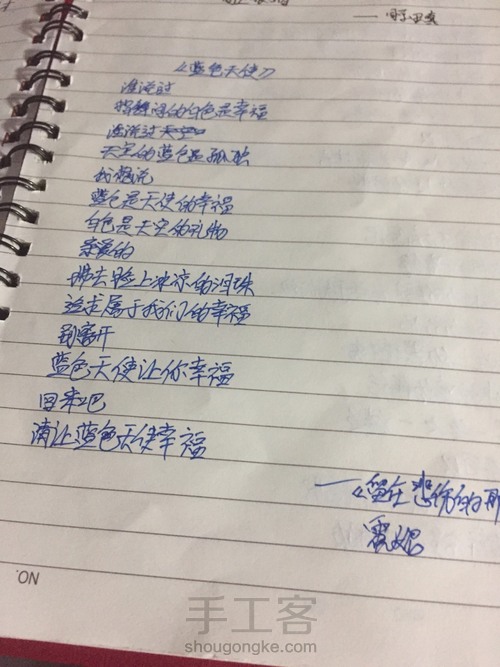 《蓝色天使》
谁说过
婚纱的白色是幸福
谁说过天空
天空的蓝色是孤独
我想说
蓝色是天使的幸福
白色是天空的礼物
亲爱的
拂去脸上冰凉的泪珠
追赶属于我们的幸福
别离开
蓝色天使让你幸福
回来吧
请让蓝色天使幸福
——《留在悲伤的
NO.
手工客
shougongke.com